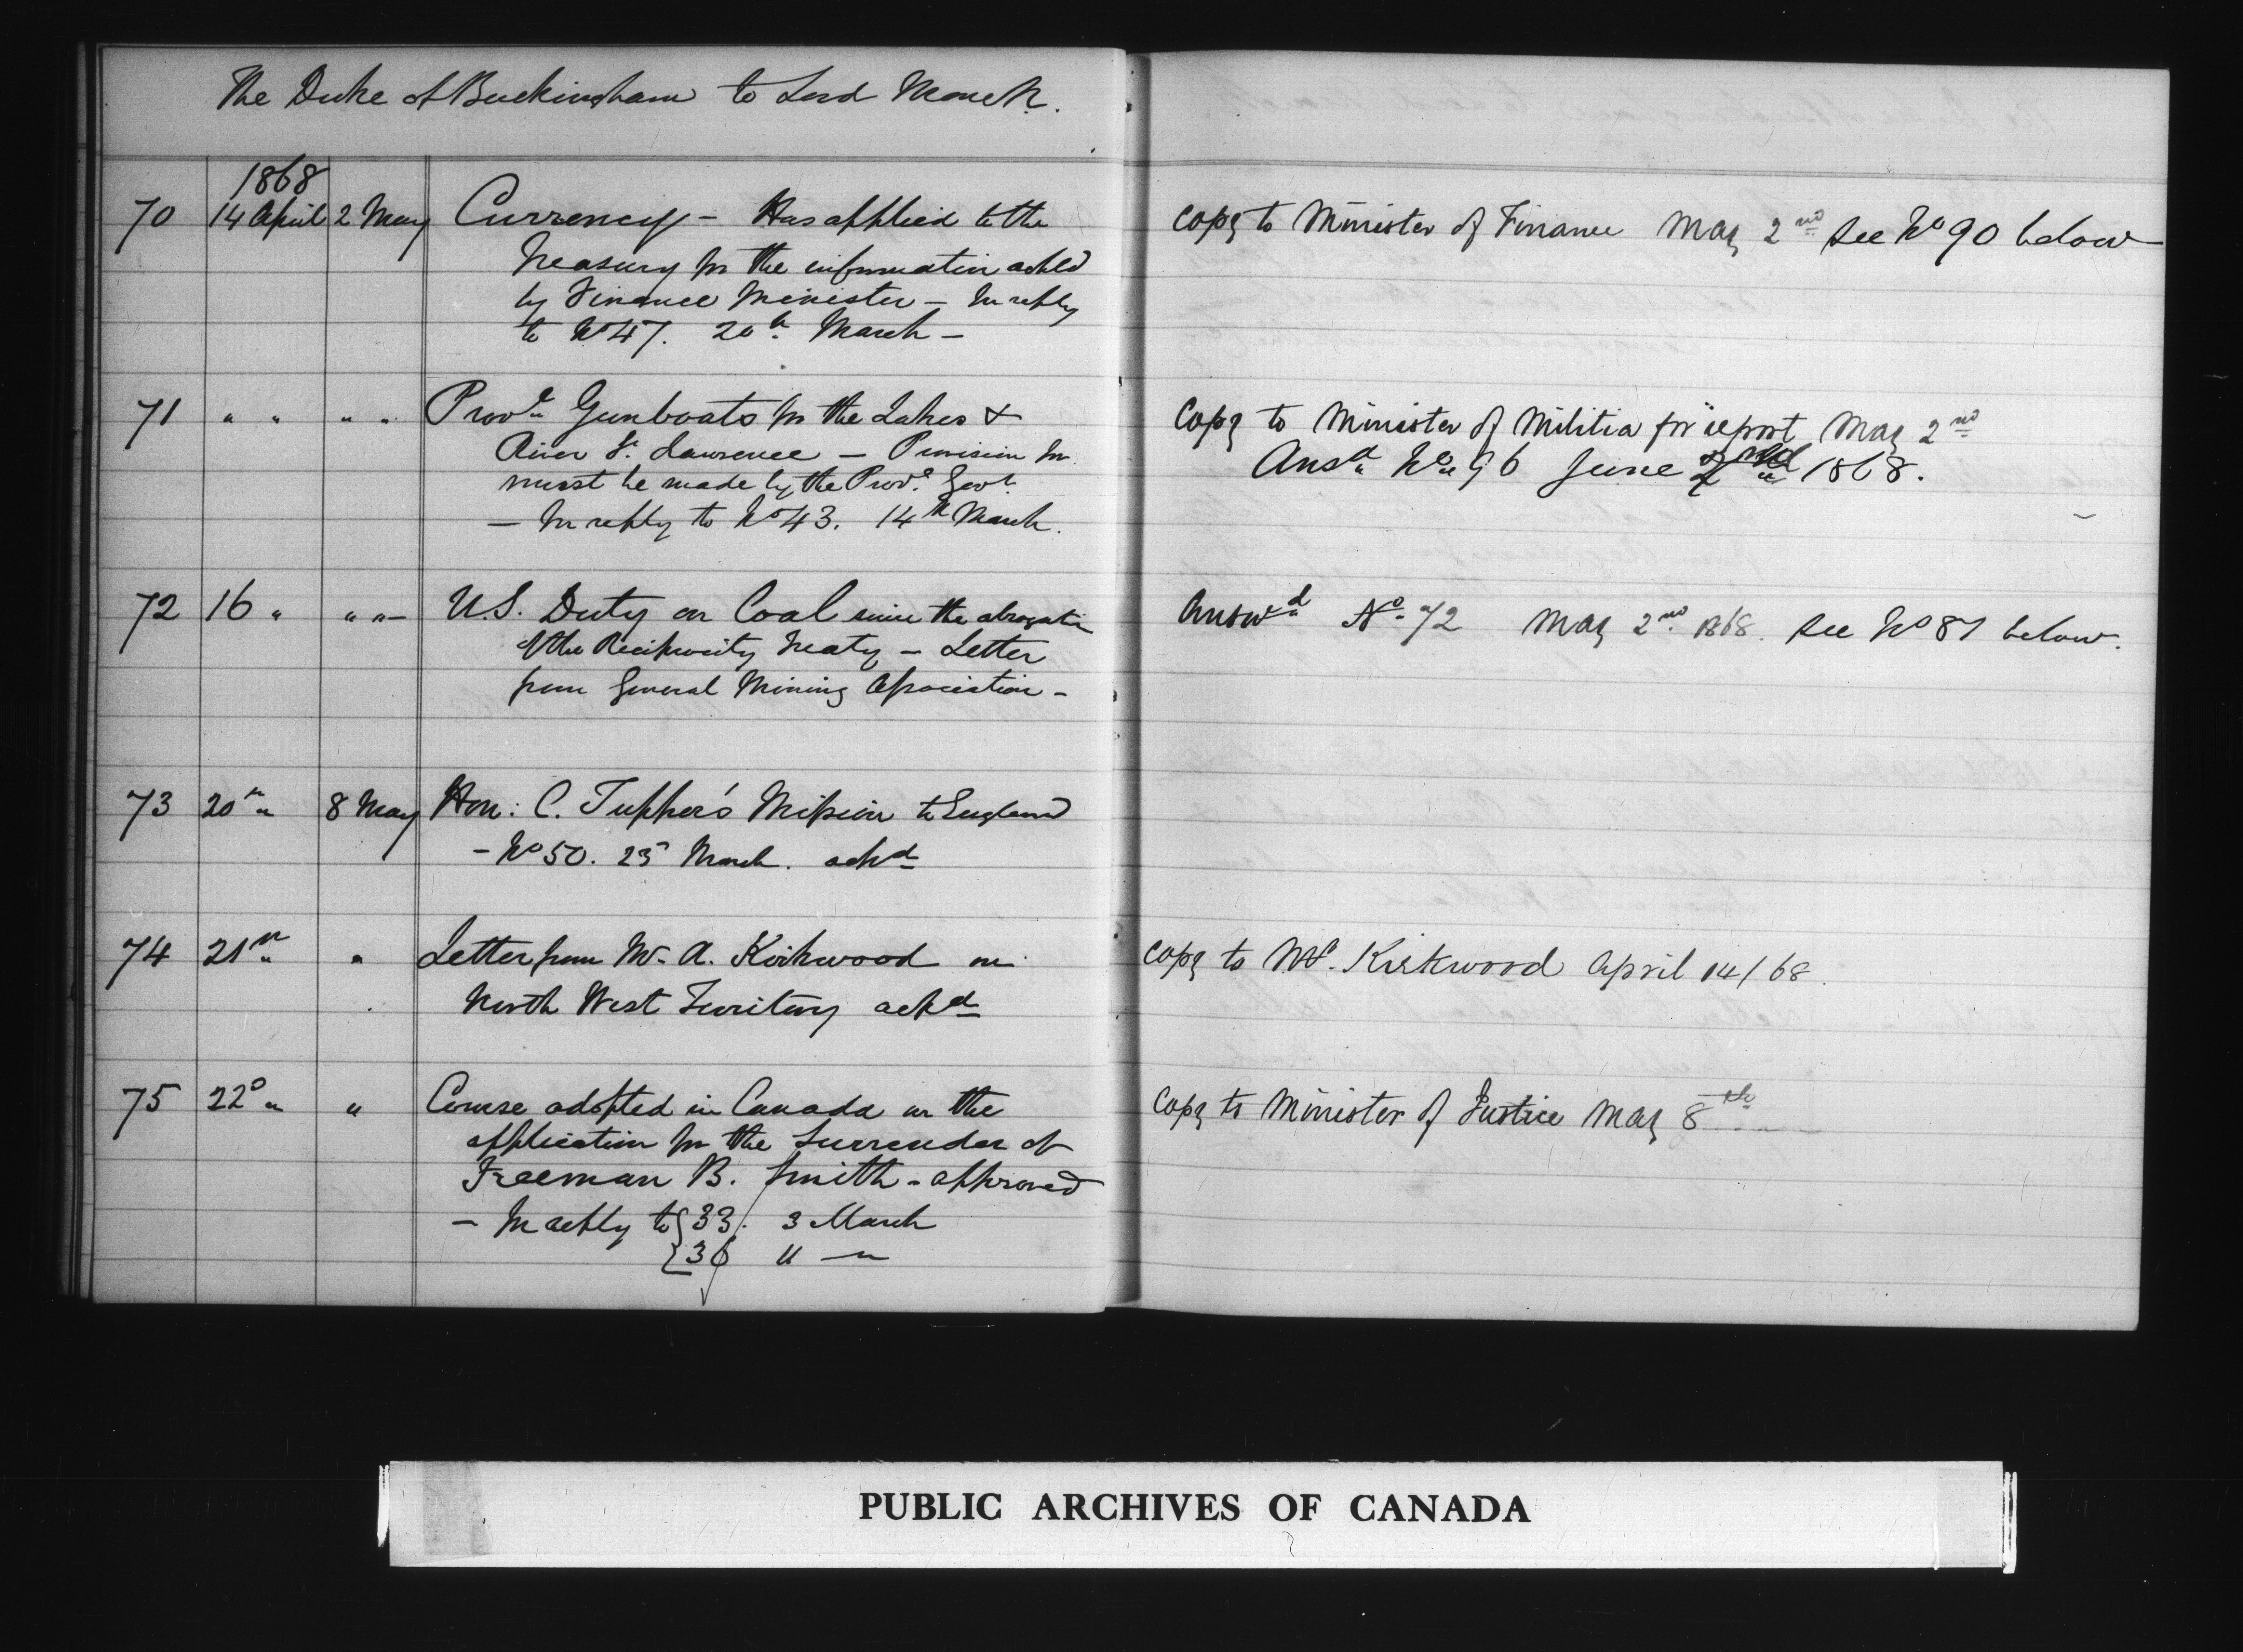 The Duke of Buckingham to Lord Monck.
1868
70 14 April 2 May Currency - Has applied to the
Treasury for the information asked
by Finance Minister - In reply
to No 47. 20th March -
Copy to Minister of Finance May 2nd See No 90 below
71 " " " " Provl Gunboats for the Lakes &
River St. Lawrence - Provision for
must be made by the Prov. Govt.
- In reply to No 43. 14th March.
Copy to Minister of Militia for report May 2nd
Ansd No 96 June 1868.
72 16 " " " - U.S. Duty on Coal since the abrogation
of the Reciprocity Treaty - Letter
from General Mining Association -
Answd No 72 May 2nd 1868. See No 87 below.
73 20th " 8 May Hon: C. Tupper's Mission to England
- No 50. 25 March. ackd
74 21st " Letter from Mr. A. Kirkwood on
North West Territory ackd
Copy to Mr. Kirkwood April 14/68.
75 22d " " Course adopted in Canada on the
application for the surrender of
Freeman B. Smith - approved
- In reply to { 33. 3 March
{ 36 " "
Copy to Minister of Justice May 8th
PUBLIC ARCHIVES OF CANADA